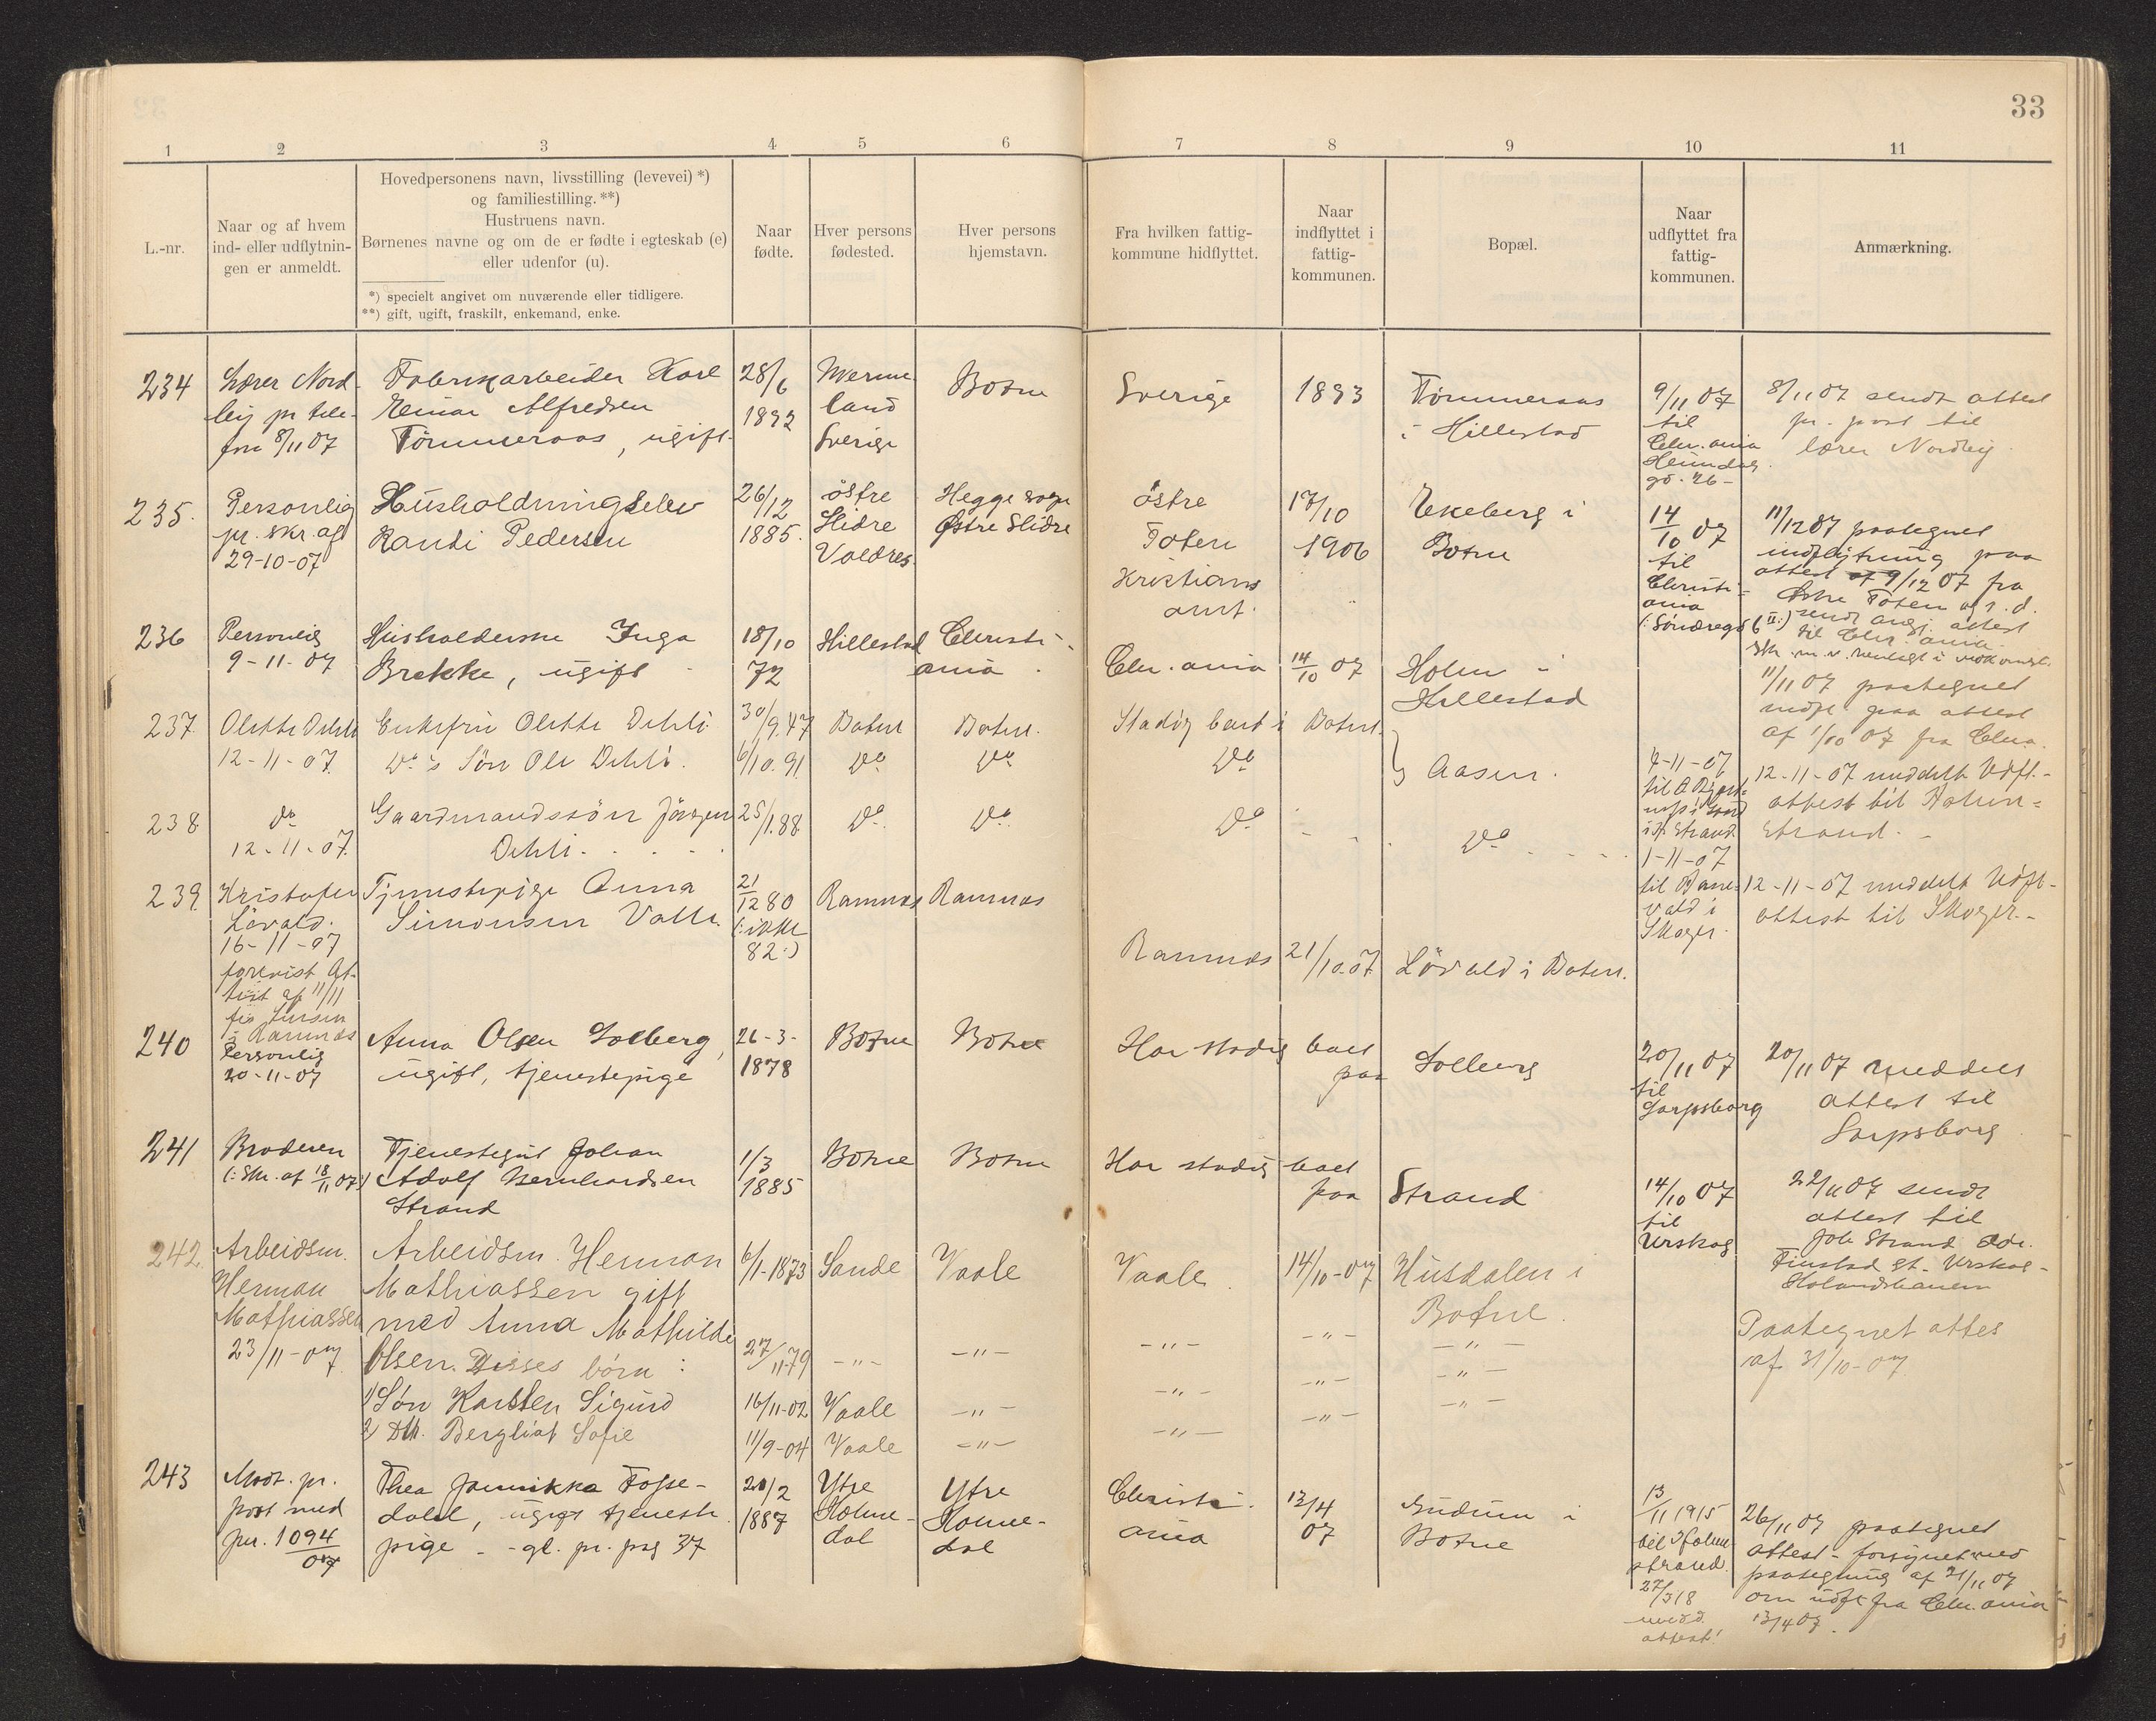 33
1
2
3
4
5
6
7
8
9
10
11
L.-nr.
Naar og af hvem
ind- eller udflytnin-
gen er anmeldt.
Hovedpersonens navn, livsstilling (levevei) *)
og familiestilling. **)
Hustruens navn.
Børnenes navne og om de er fødte i egteskab (e)
eller udenfor (u).
*) specielt angivet om nuværende eller tidligere.
**) gift, ugift, fraskilt, enkemand, enke.
Naar
fødte.
Hver persons
fødested.
Hver persons
hjemstavn.
Fra hvilken fattig-
kommune hidflyttet.
Naar
indflyttet i
fattig-
kommunen.
Bopæl.
Naar
udflyttet fra
fattig-
kommunen.
Anmærkning.
234
Lærer Nord-
bøy pr tele-
fon 8/11 07
Fabrikarbeider Karl
Einar Alfredsen
Tømmeraas, ugift
28/6
1892
Werme
land
Sverige
Botne
Sverige
1893
Tømmeraas
i Hillestad
9/11 07
til
Chr.ania
8/11 07 sendt attest
pr. post til
lærer Nordbøy
235.
Personlig
pr. skr. af
29-10-07
Husholdningselev
Randi Pedersen
26/12
1885.
østre
Slidre
Valdres
Hegge sogn
Østre Slidre
østre
Toten
Kristians
amt.
17/10
1906
Ekeberg i
Botne
14/10 07
til
Christi-
ania
(: Søndregd 6 II:)
11/12 07 paategnet
indflytning paa
attest af 9/12 07 fra
Østre Toten og s. d.
sendt ang. attest
til Chr.ania
236
Personlig
9-11-07
Husholderske Inga
Brekke, ugift
18/10
72
Hillestad
Christi-
ania
Chr.ania
14/10 07
Holm i
Hillestad
11/11 07 paategnet
indfl. paa attest
af 1/10 07 fra Chra.
237
Olette Dehli
12-11-07.
Enkefru Olette Dehli
Do's Søn Ole Dehli.
30/9.47
6/10.91
Botne
Do
Botne.
Do
Stadig boet i Botne.
Do
Aasen.
7-11-07
12-11-07 meddelt Udfl.-
attest til Holm-
strand. -
238
do
12-11-07.
Gaardmandssøn Jörgen
Dehli
25/1.88
Do.
Do.
Do
Do
1-11-07
239.
Kristofer
Lövald.
16-11-07
forevist At-
test af 11/11
i Ramnæs
Tjenestepige Anna
Simonsen Valle.
21/12 80
(: ikke
82:)
Ramnæs
Ramnæs
Ramnæs
21/10.07
Lövald i Botne.
til
Skoger.
12-11-07 meddelt Udfl-
attest til Skoger.-
240
Personlig
20-11-07
Anna Olsen Solberg,
ugift, tjenestepige
26-3-
1878
Botne
Botne
Har stadig boet
paa
Solberg
20/11 07
til
Sarpsborg
20/11 07 meddelt
attest til
Sarpsborg
241
Broderen
(: Skr. af 18/11 07:)
Tjenestegut Johan
Adolf Bernhardsen
Strand
1/3
1885
Botne
Botne
Har stadig boet
paa
Strand
14/10 07
til
Urskog
22/11 07 sendt
attest til
Joh Strand adr.
Finstad st. Urskog-
Hølandsbanen
242
Arbeidsm.
Herman
Mathiassen
23/11-07
Arbeidsm. Herman
Mathiassen gift
med Anna Mathilde
Olsen. Disses börn:
1) Søn Karsten Sigurd
2) Dtt. Bergliot Sofie
6/1-1873
27/11-79
16/11-02
11/9-04
Sande
-"-
Vaale
Vaale
Vaale
-"-
-"-
-"-
Vaale
-"-
-"-
-"-
14/10-07
-"-
-"-
-"-
Husdalen i
Botne.
-"-
-"-
-"-
Paategnet attes
af 31/10-07
243
Modt. pr.
post med
jnr. 1094/07
Thea Jannikka Fosse-
dahl, ugift tjeneste
pige - gl. pr. pag 37
20/2
1887
Ytre
Holme-
dal
Ytre
Holme-
dal
Christi-
ania
13/4
07
Gudum i
Botne
13/11 1915
til Holm
strand.
27/3 18
medd.
attest!
26/11 07 paategnet
attest - forsynet med
paategning af 21/11 07
om udfl. fra Chr.ania
13/4 07.